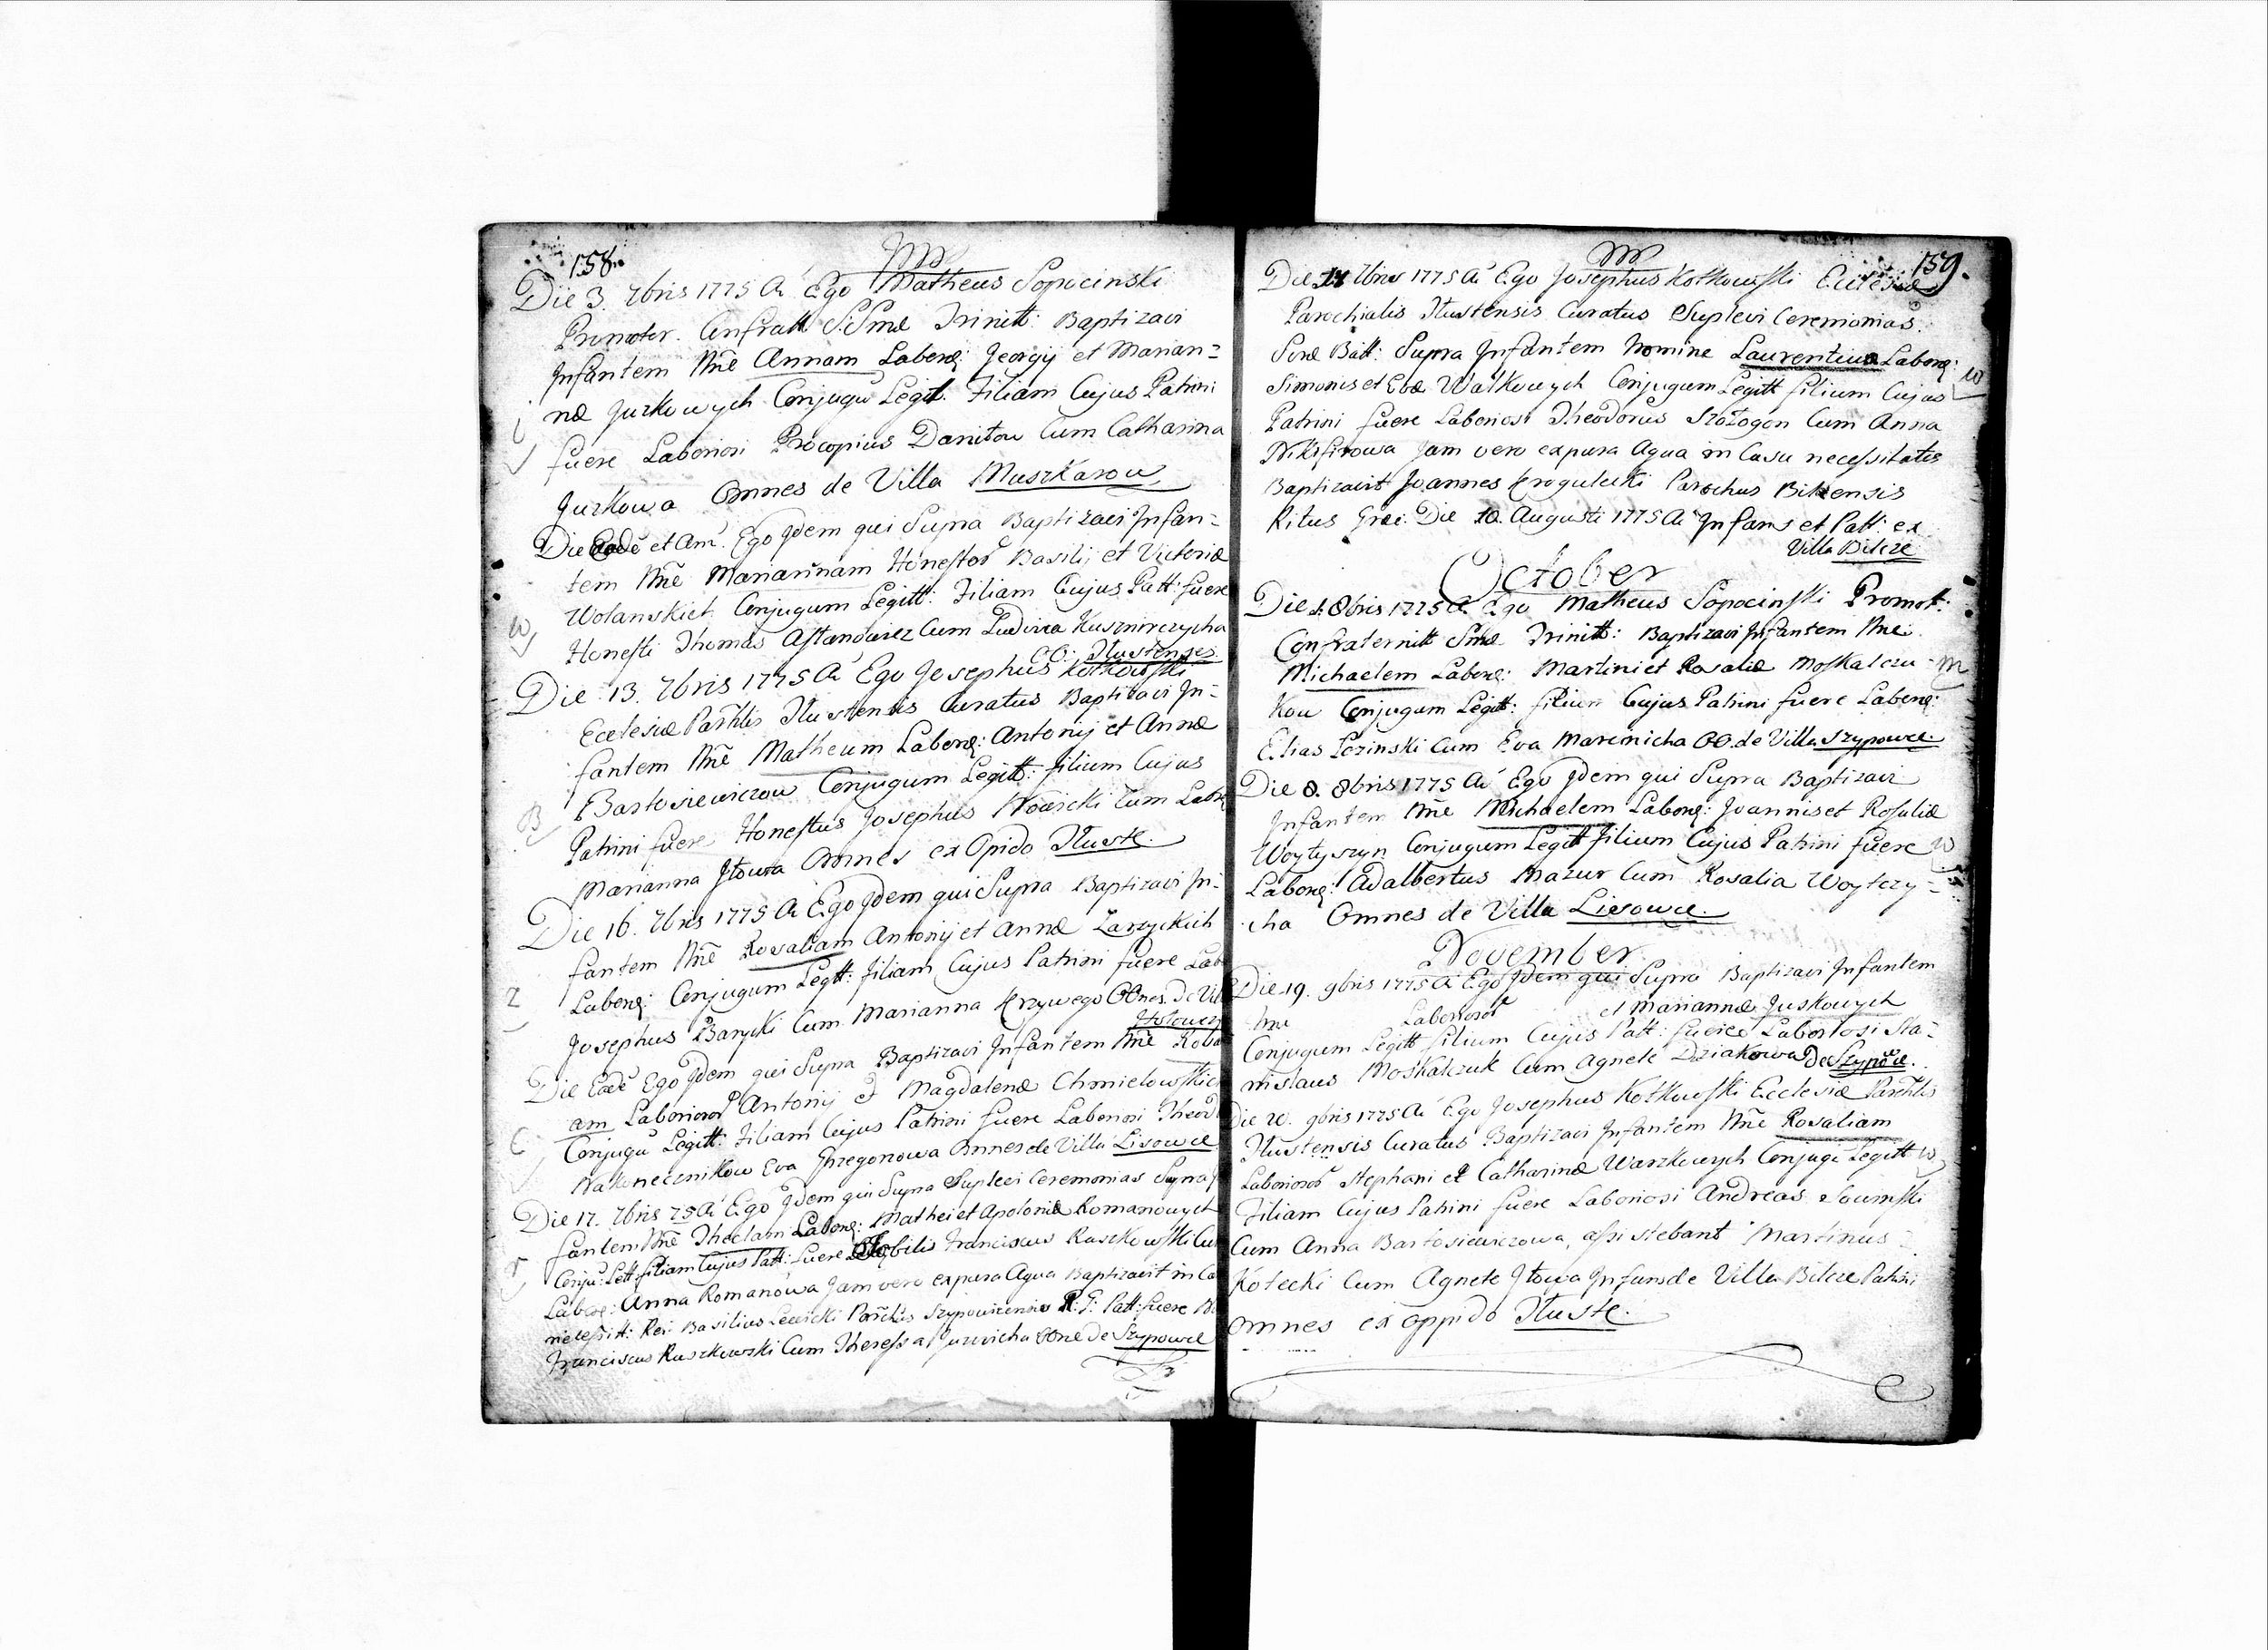 158.
Die 3. 7bris 1775 A Ego Matheus Sopocinski
Promotor. Confratt. S.Smæ Trinitt: Baptizavi
Infantem Nñe Annam Laborę: Georgij et Marian=
næ Jurkowych Conjugũ Legit. Filiam Cujus Patrini
fuere Laboriosi Procopius Danitow Cum Catharina
Jurkowa Omnes de Villa Muszkarow
Die Eadẽ et Añ. Ego Idem qui Supra Baptizavi Infan=
tem Nñe Mariannam Honestor Basilij et Victoriæ
Wolanskich Conjugum Legitt: Filiam Cujus Patt: fuere
Honesti Thomas Astanowicz Cum Ludivica Kusznirczycha
OO: Tłustenses
Die 13. 7bris 1775 A Ego Josephus Kotkowski
Ecclesiæ Parchlis Tłustensis Curatus Baptizavi In=
fantem Nñe Matheum Laborę: Antonij et Annæ
Bartosiewiczow Conjugum Legitt: filium Cujus
Patrini fuere Honestus Josephus Nowicki Cum Labrę
Marianna Iłowa Omnes ex Opido Tłuste.
Die 16. 7bris 1775 A Ego Idem qui Supra Baptizavi In=
fantem Nñe Rosaliam Antonij et Annæ Zarzyckich
Laborę: Conjugum Legtt: filiam Cujus Patrini fuere Lab
Josephus Barycki Cum Marianna Krzywego OOnes. De Vil
Hołowcz
Die Eadẽ Ego Idem qui Supra Baptizavi Infantem Nñe Rosa
am Laborioror Antonij et Magdalenæ Chmielowskich
Conjugũ Legitt: filiam Cujus Patrini fuere Laboriosi Theod
Nakonecznikow Eva Grzegorzowa Omnes de Villa Lisowce
Die 17. 7bris 75 A Ego Idem qui Supra Suplevi Ceremonias Supra
fantem Nñe Theclam Laborę: Mathei et Apoloniæ Romanowych
Conju: Lett filiam Cujus Patt: Fuere Nobilis Franciscus Raszkowski Cum
Laborę: Anna Romanowa Jam vero ex pura Agua Baptizavit in Ca
necessitt: Rev: Basilius Lewicki Parchus Szypowicensis R: G: Patt: fuere
Franciscus Ruszkowski Cum Theressa Jurzicha OOne de Szypowce
159.
Die 7bris 1775 A Ego Josephus Kotkowski Ecclesiæ
Parochialis Tłustensis Curatus Suplevi Ceremonias
Supra Infantem Nomine Laurentium Laborę:
Simonis et Evæ Walkowych Conjugum Legitt filium Cujus
Patrini fuere Laboriosi Theodorus Szołogon Cum Anna
Nikifirowa Jam vero ex pura Agua in Casu necessitatis
Baptizavit Joannes Krogulecki Parochus Bilcensis
Ritus Græc: Die 10. Augusti 1775 A Infans et Patt: ex
Villa Bilcze
October
Die 1. 8bris 1775 A. Ego Matheus Sopocinski Promot:
Confraternitt Smæ Trinitt: Baptizavi Infantem Nñe
Michaelem Laborę: Martini et Rosaliæ Moskalczu=
kow Conjugum Legitt: filium Cujus Patrini fuere Laborę:
Elias Lozinski Cum Eva Marcinicha OO. de Villa Szypowce.
Die 8. 8bris 1775 A Ego Idem qui Supra Baptizavi
Infantem Nñe Michaelem Laborę: Joannis et Rosaliæ
Woytyszyn Conjugum Legitt filium Cujus Patrini fuere
Laborę: Adalbertus Mazur Cum Rosalia Woytczy=
cha Omnes de Villa Lisowce.
November
Die 19. 9bris 1775 A Ego Idem qui Supra Baptizavi Infantem
Nñe Laborioror et Mariannæ Juskowych
Conjugum Legitt filium Cujus Patt: fuere Laboriosi Sta=
nislaus Moskalczuk Cum Agnete Dziakowa De Szypowce.
Die 20. 9bris 1775 A Ego Josephus Kotkowski Ecclesiæ Parchlis
Tłustensis Curatus Baptizavi Infantem Nñe Rosaliam
Laborioror Stephani et Catharinæ Warzkowych Conjugũ Legitt
Filiam Cujus Patrini fuere Laboriosi Andreas
Cum Anna Bartosiewiczowa, assistebant Martinus
Kotecki Cum Agnete Iłowa Infans de Villa Bilcze Patrini
Omnes ex oppido Tłuste.